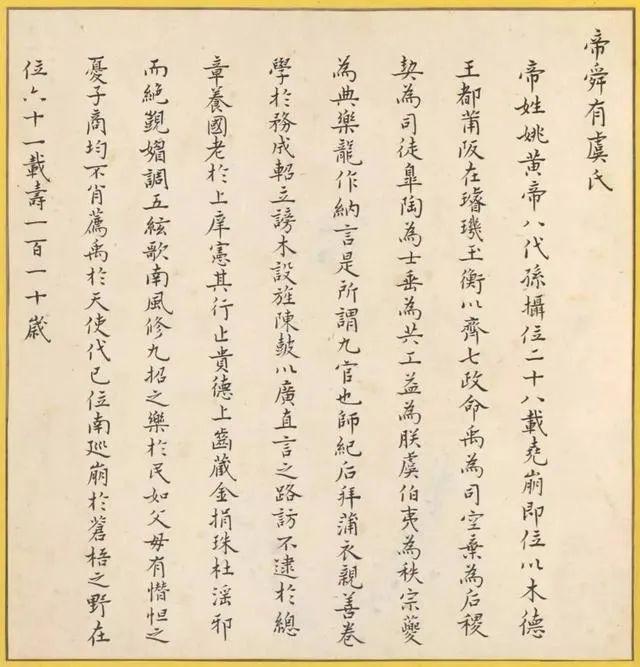 帝舜有虞氏
帝姓姚黃帝八代孫攝位二十八載堯崩即位以木德
王都蒲阪在璿璣玉衡以齊七政命禹為司空棄為后稷
契為司徒臯陶為士垂為共工益為朕虞伯夷為秩宗夔
為典樂龍作納言是所謂九官也師紀后拜蒲衣親善卷
學於務成軺立謗木設旌陳鼓以廣直言之路訪不逮於總
章養國老於上庠憲其行止貴德上齒藏金捐珠杜淫邪
而絕覬媢調五絃歌南風修九招之樂於民如父母有憯怛之
憂子商均不肖薦禹於天使代己位南巡崩於蒼梧之野在
位六十一載壽一百一十歲